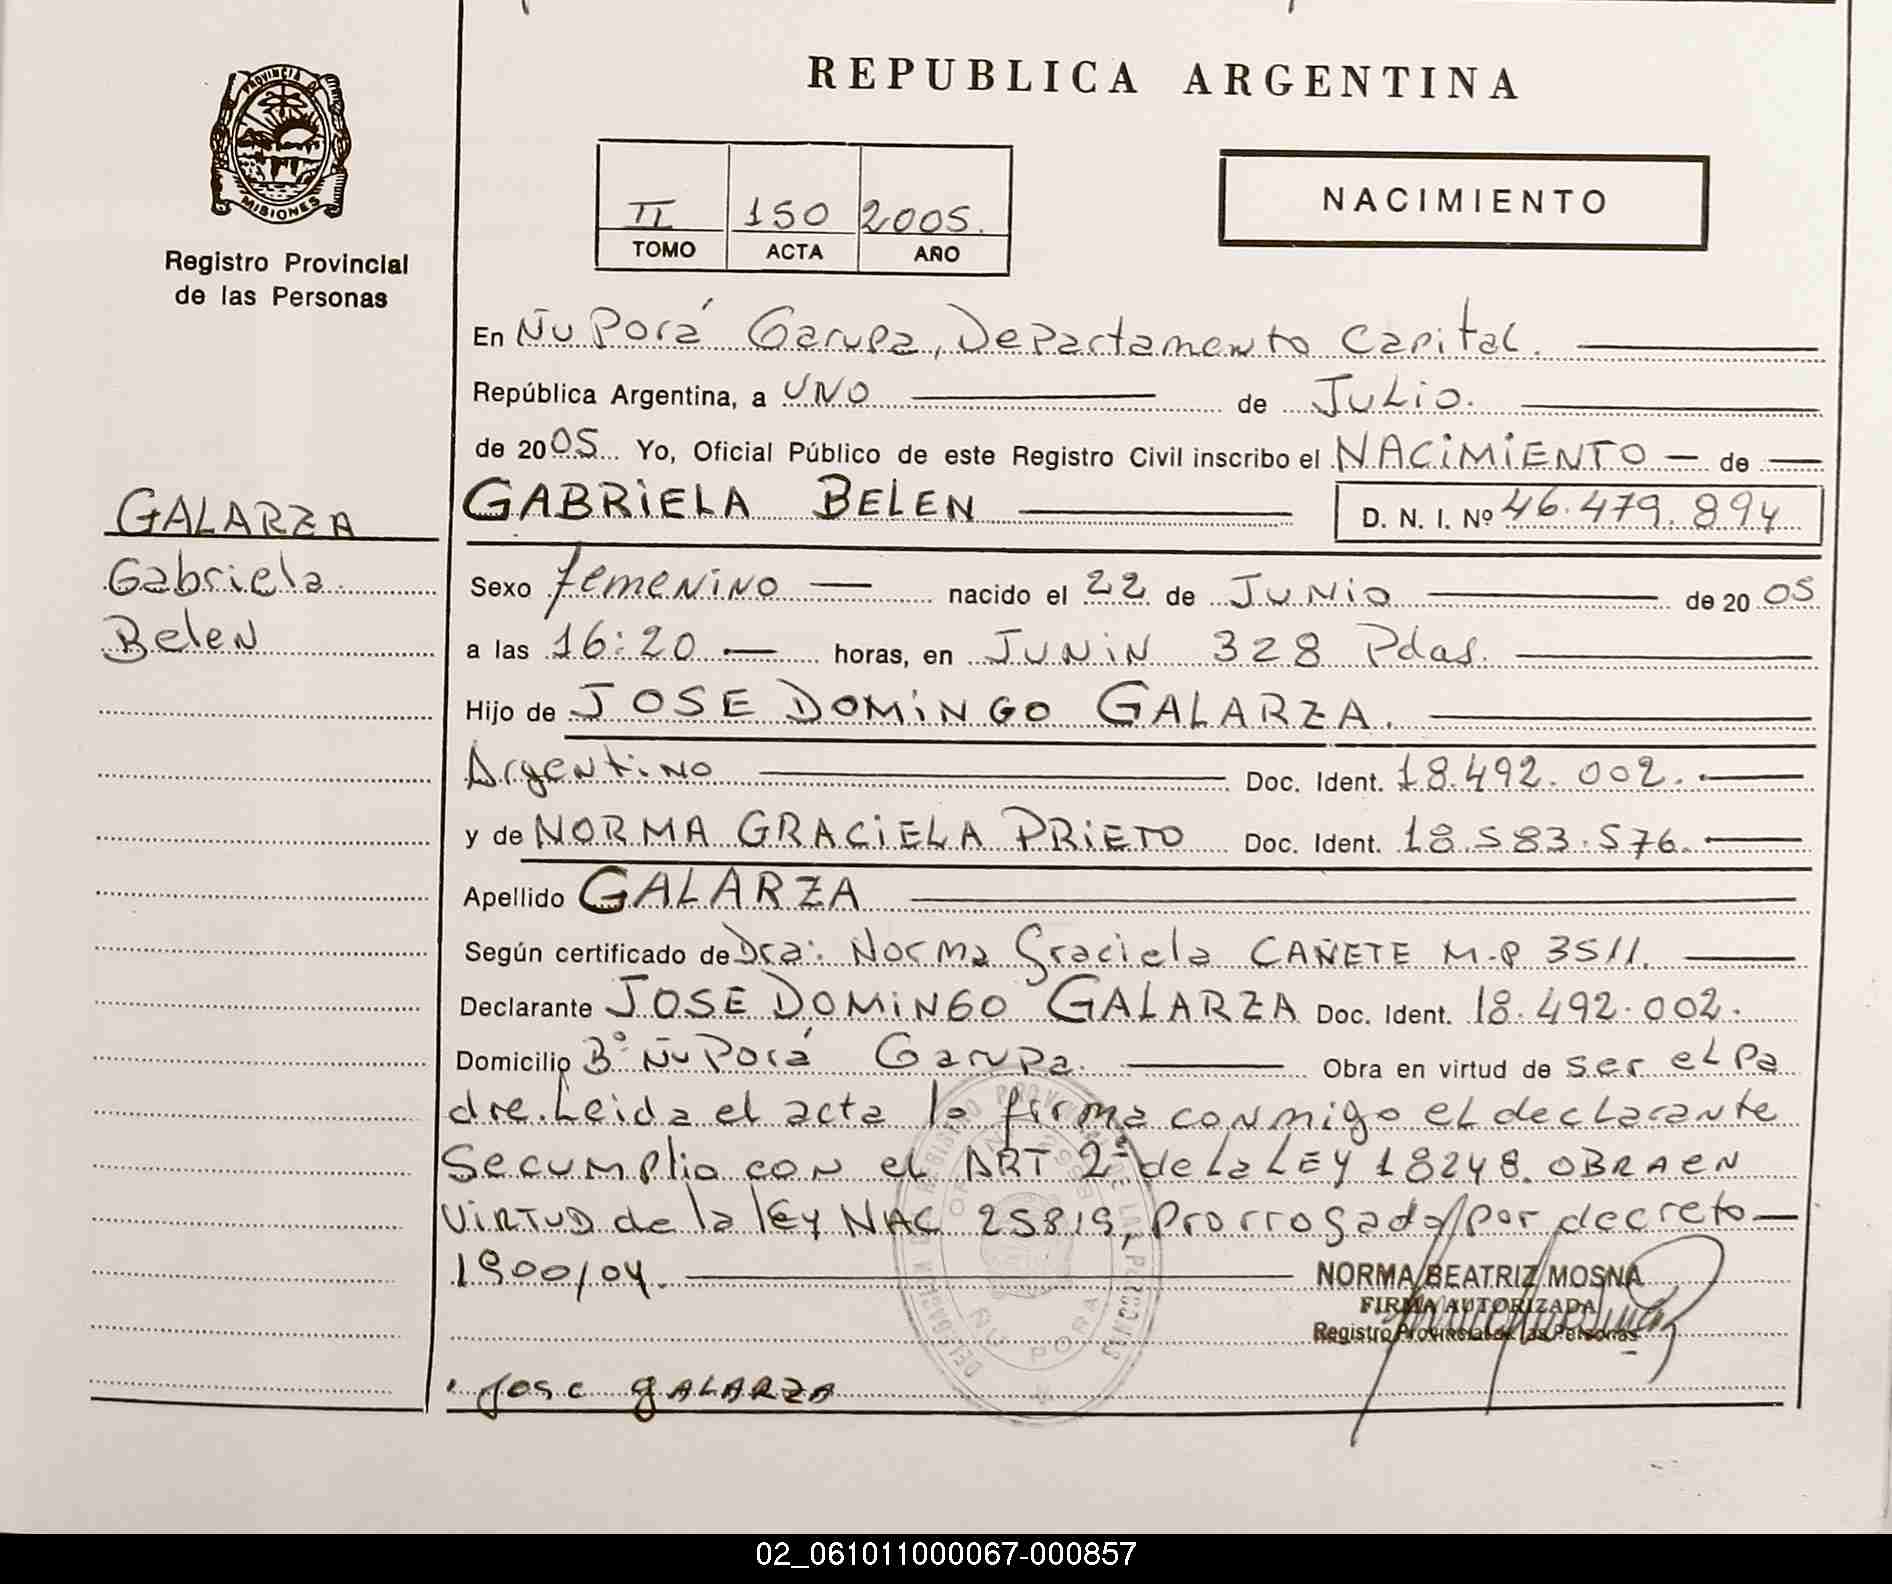 REPUBLICA ARGENTINA
PROVINCIA DE
MISIONES
Registro Provincial
de las Personas
II 150 2005.
TOMO ACTA AÑO
NACIMIENTO
En Ñu Porá Garupa, Departamento Capital.
República Argentina, a UNO de Julio.
de 2005 Yo, Oficial Público de este Registro Civil inscribo el NACIMIENTO de
GALARZA
Gabriela
Belen
GABRIELA BELEN D. N. I. Nº 46.479.894
Sexo femenino nacido el 22 de Junio de 2005
a las 16:20 horas, en JUNIN 328 Pdas.
Hijo de JOSE DOMINGO GALARZA.
Argentino Doc. Ident. 18.492.002.
y de NORMA GRACIELA PRIETO Doc. Ident. 18.583.576.
Apellido GALARZA
Según certificado de Dra: Norma Graciela CAÑETE M.P 3511.
Declarante JOSE DOMINGO GALARZA Doc. Ident. 18.492.002.
Domicilio Bº Ñu Porá Garupa. Obra en virtud de ser el Pa
dre. Leida el acta la firma conmigo el declarante
Se cumplio con el ART 2º de la LEY 18248. OBRA EN
VIRTUD de la ley NAC 25819, Prorrogado por decreto
1900/04.
NORMA BEATRIZ MOSNA
FIRMA AUTORIZADA
Registro Provincial de las Personas
Jose GALARZA
ÑU PORA
02_061011000067-000857